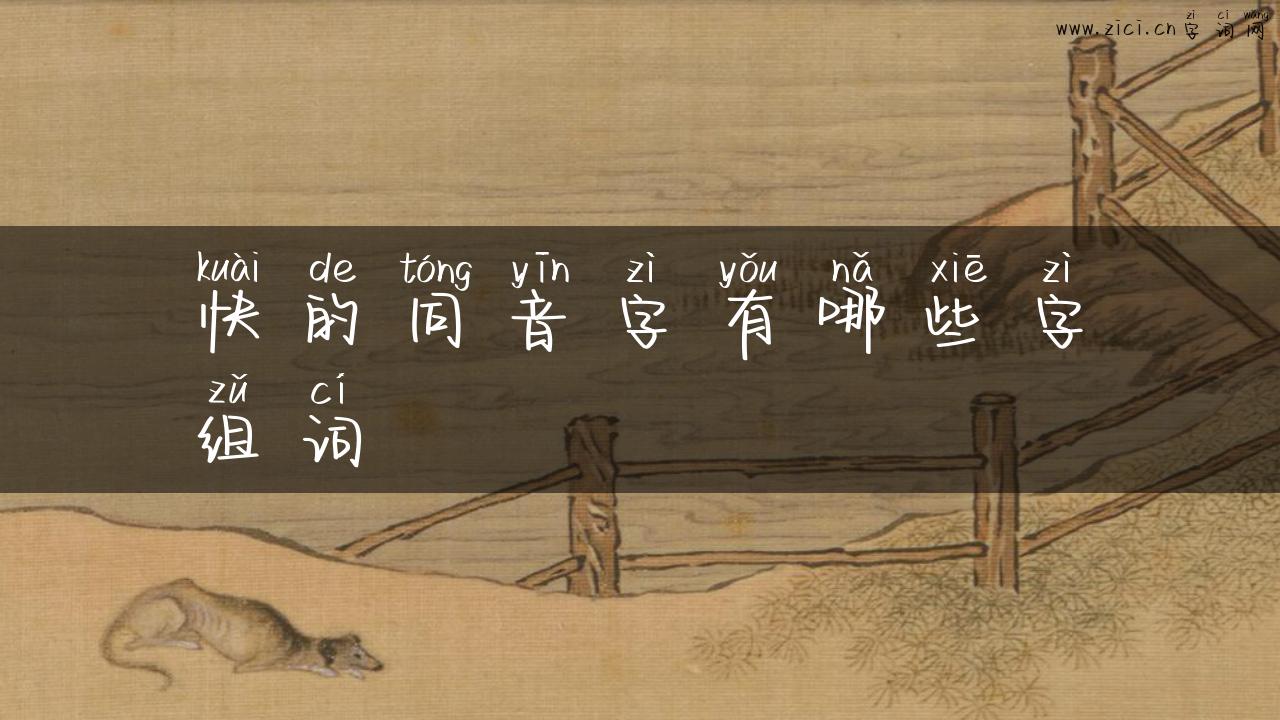 zi ci wang
www.zici.cn 字词网
kuài de tóng yīn zì yǒu nǎ xiē zì
快的同音字有哪些字
zǔ cí
组词